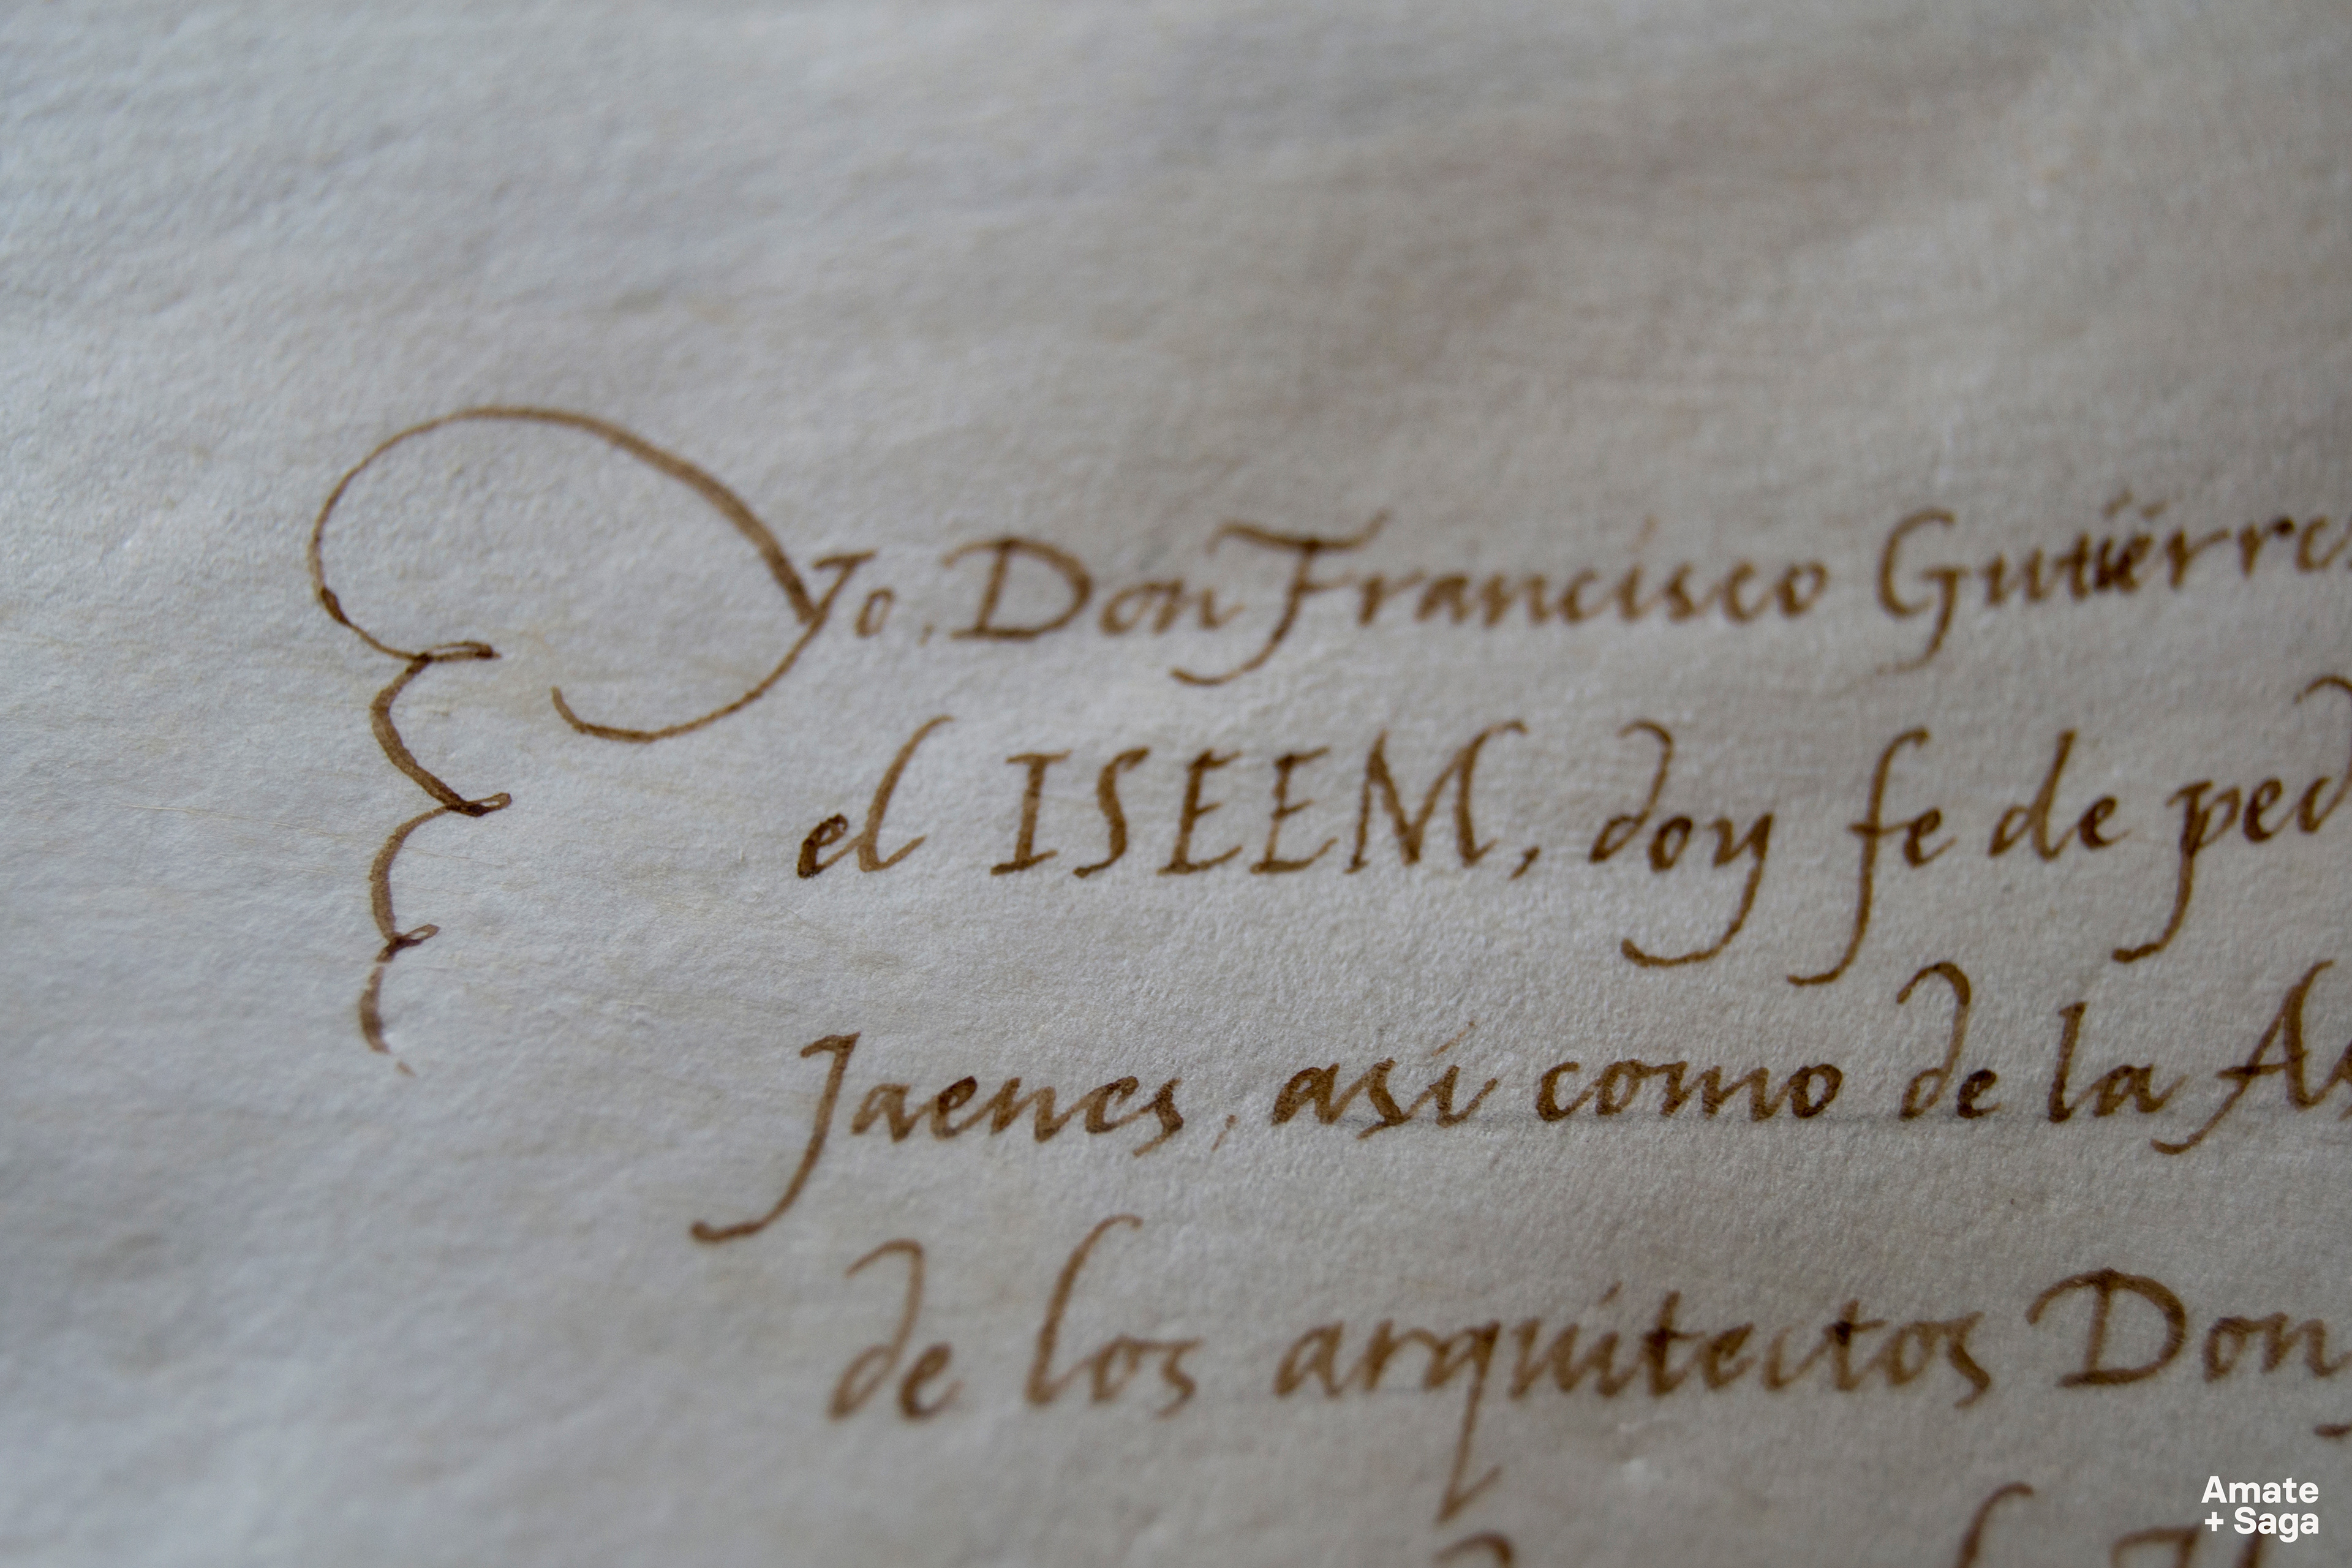 Yo, Don Francisco Gutiérre
el ISEEM, doy fe de ped
Jaenes, así como de la As
de los arquitectos Don
Amate
+ Saga